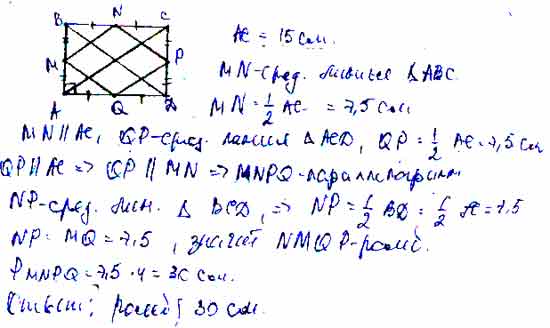 B N C
M P
A Q D
AC = 15 см.
MN-сред. линия Δ ABC.
MN = 1/2 AC = 7,5 см
MN ∥ AC, QP-сред. линия Δ ACD, QP = 1/2 AC = 7,5 см
QP ∥ AC => QP ∥ MN => MNPQ-параллелограмм
NP-сред. лин. Δ BCD, => NP = 1/2 BD = 1/2 AC = 7,5
NP = MQ = 7,5, значит NMQP-ромб.
P MNPQ = 7,5 · 4 = 30 см.
Ответ: ромб; 30 см.